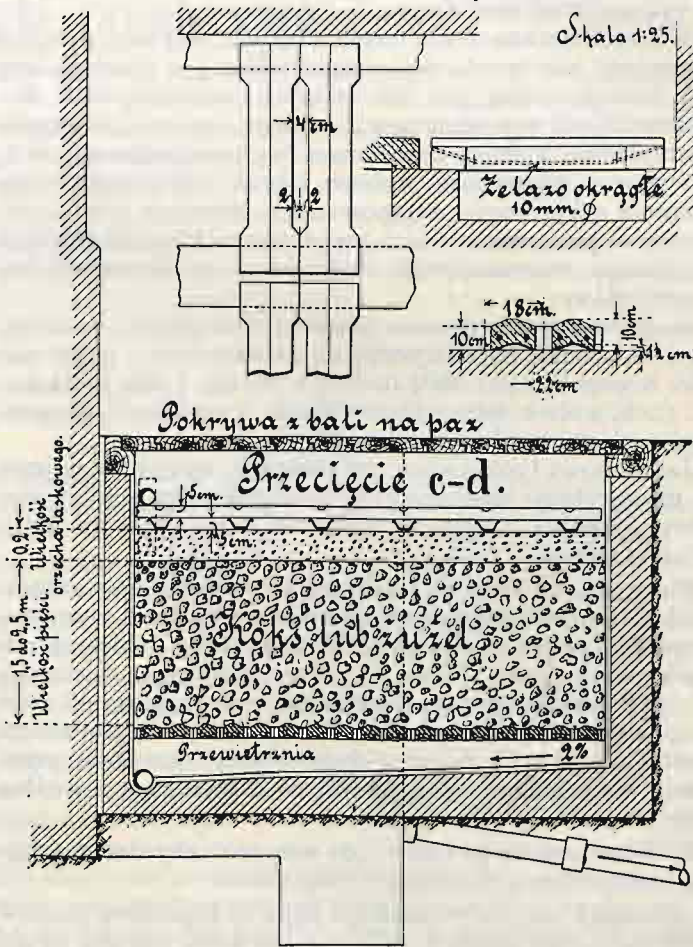 Skala 1:25.
4 cm
2 2
Żelazo okrągłe
10 mm. ϕ
18 cm.
10 cm
10 cm
22 cm
Pokrywa z bali na paz
Przecięcie c-d.
5 cm.
5 cm
0.2
Wielkość
orzecha laskowego.
1,5 do 2,5 m.
Wielkość pięści.
Koks lub żużel
Przewietrznia
2%